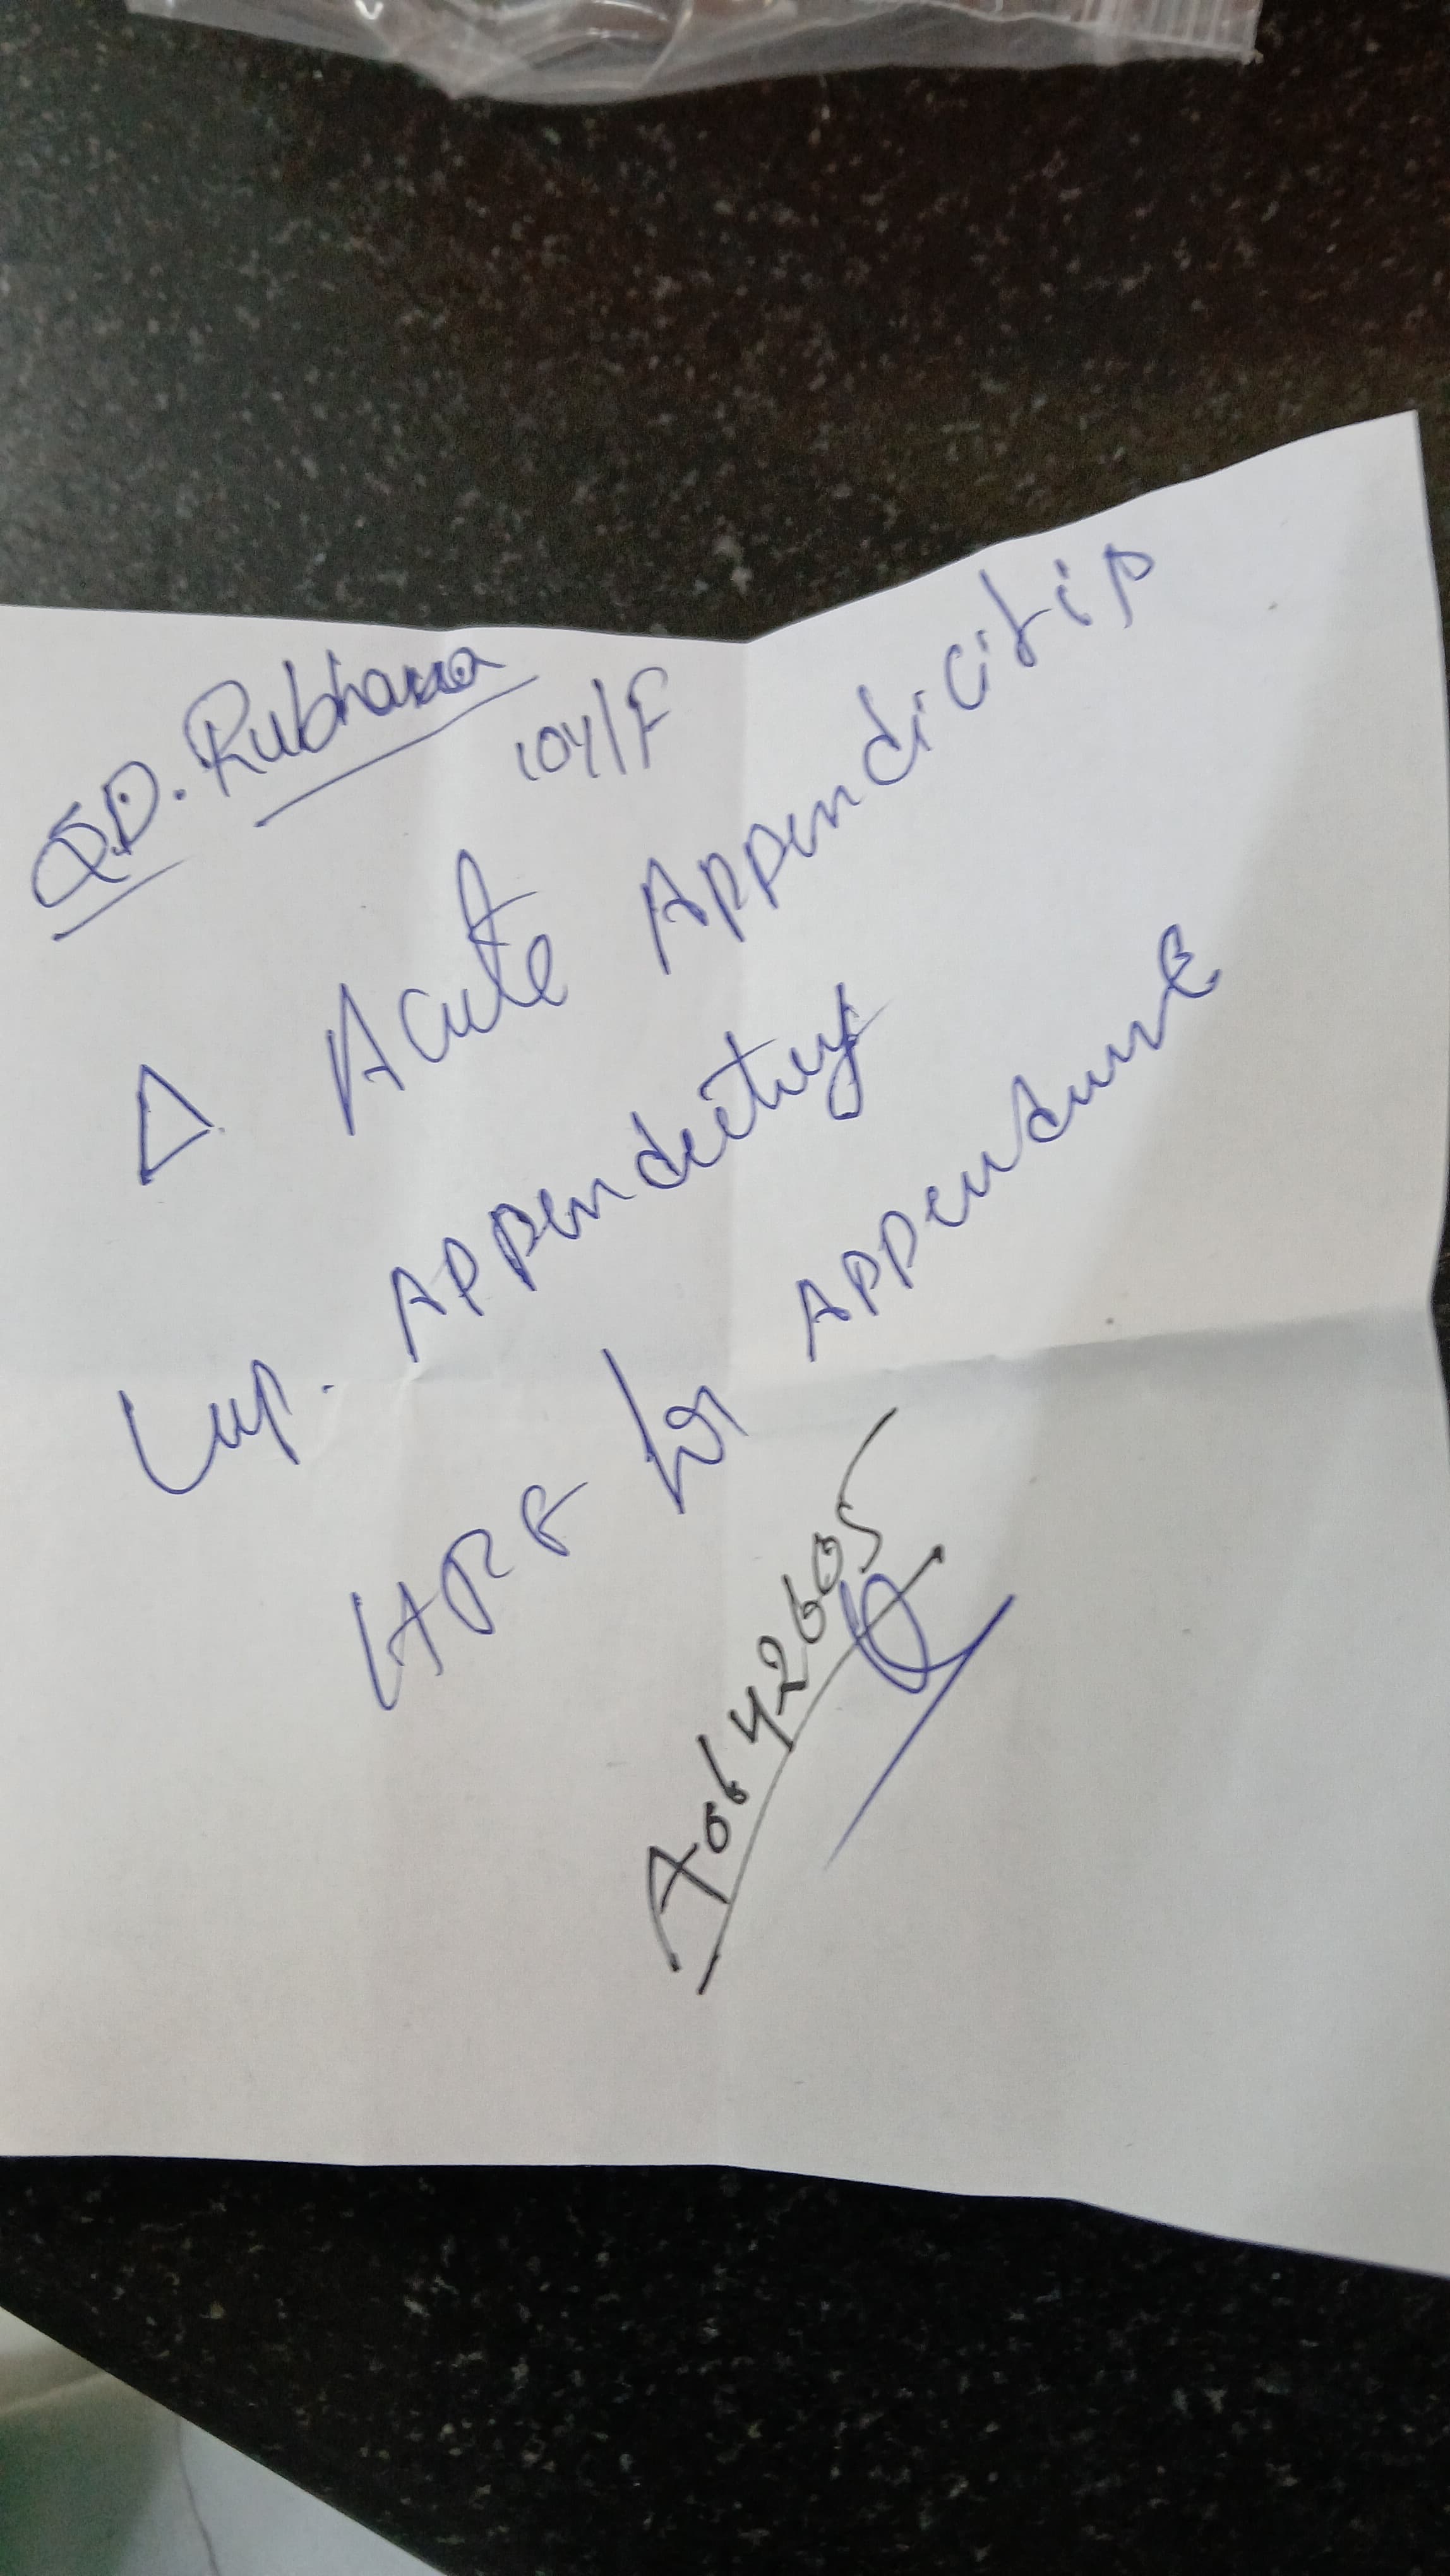 SD. Rubhana
10Y/F
Δ Acute Appendicitis
Lap. Appendectomy
HPE for Appendix
A0642605